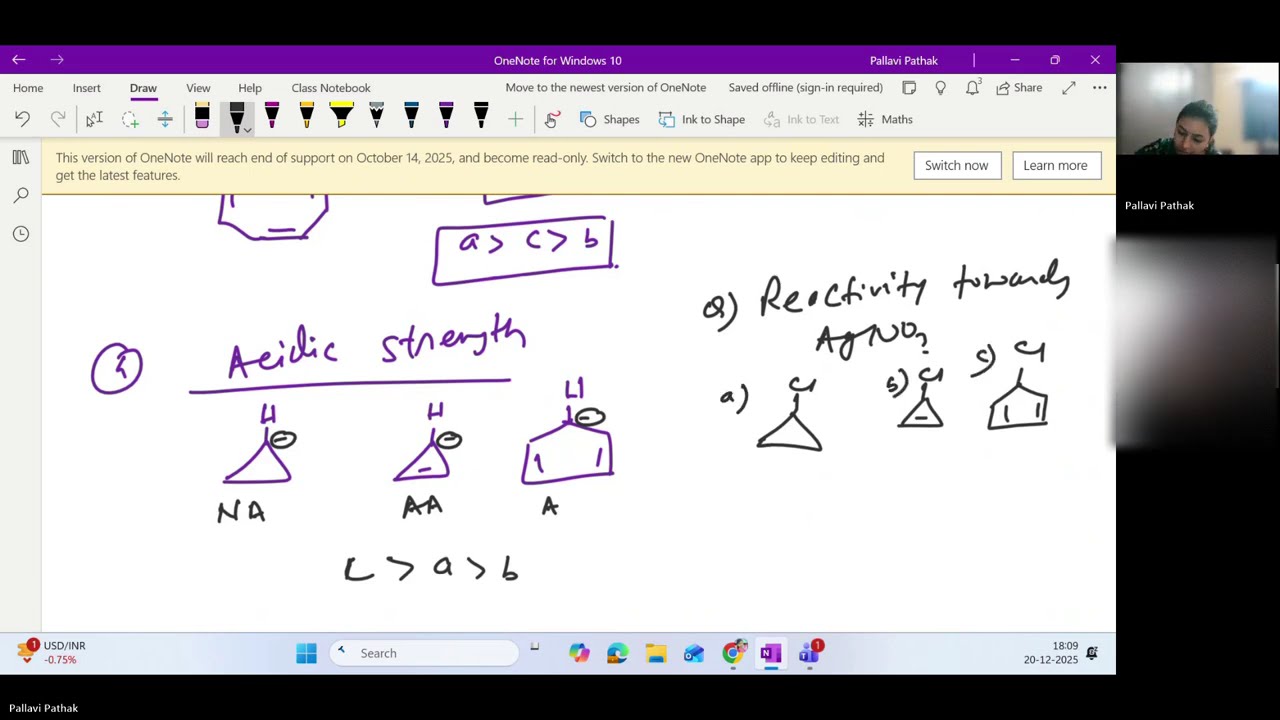 OneNote for Windows 10
Pallavi Pathak
Home Insert Draw View Help Class Notebook
Move to the newest version of OneNote Saved offline (sign-in required) 3 Share
Shapes Ink to Shape Ink to Text Maths
This version of OneNote will reach end of support on October 14, 2025, and become read-only. Switch to the new OneNote app to keep editing and
get the latest features.
Switch now Learn more
Pallavi Pathak
a > c > b
Q) Reactivity towards
AgNO3
Acidic strength
a) Cl b) Cl c) Cl
H H H
NA AA A
c > a > b
1 USD/INR
-0.75%
Search
1
18:09
20-12-2025
Pallavi Pathak